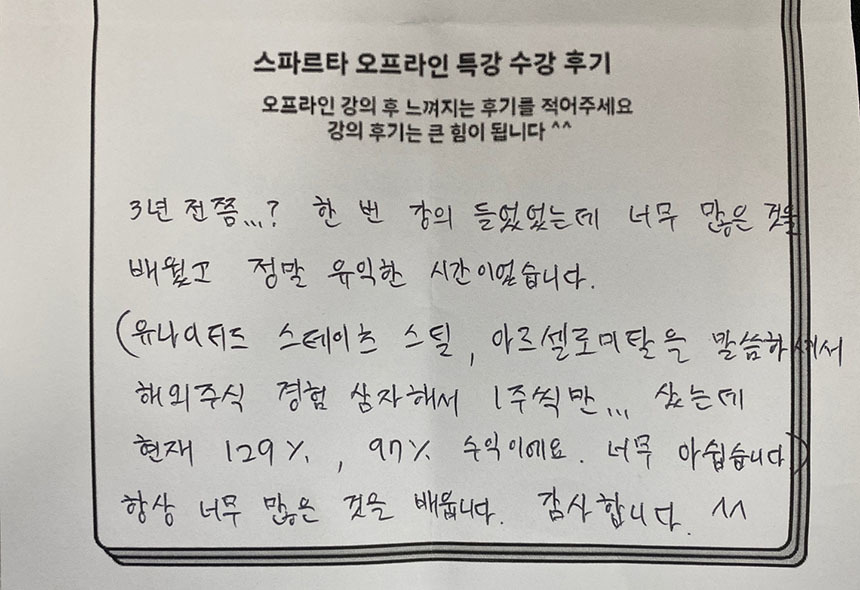 스파르타 오프라인 특강 수강 후기
오프라인 강의 후 느껴지는 후기를 적어주세요
강의 후기는 큰 힘이 됩니다 ^^
3년 전쯤...? 한 번 강의 들었었는데 너무 많은 것을
배웠고 정말 유익한 시간이었습니다.
(유나이티드 스테이츠 스틸, 아르셀로미탈을 말씀하셔서
해외주식 경험 삼자해서 1주씩만... 샀는데
현재 129%, 97% 수익이에요. 너무 아쉽습니다)
항상 너무 많은 것을 배웁니다. 감사합니다. ^^